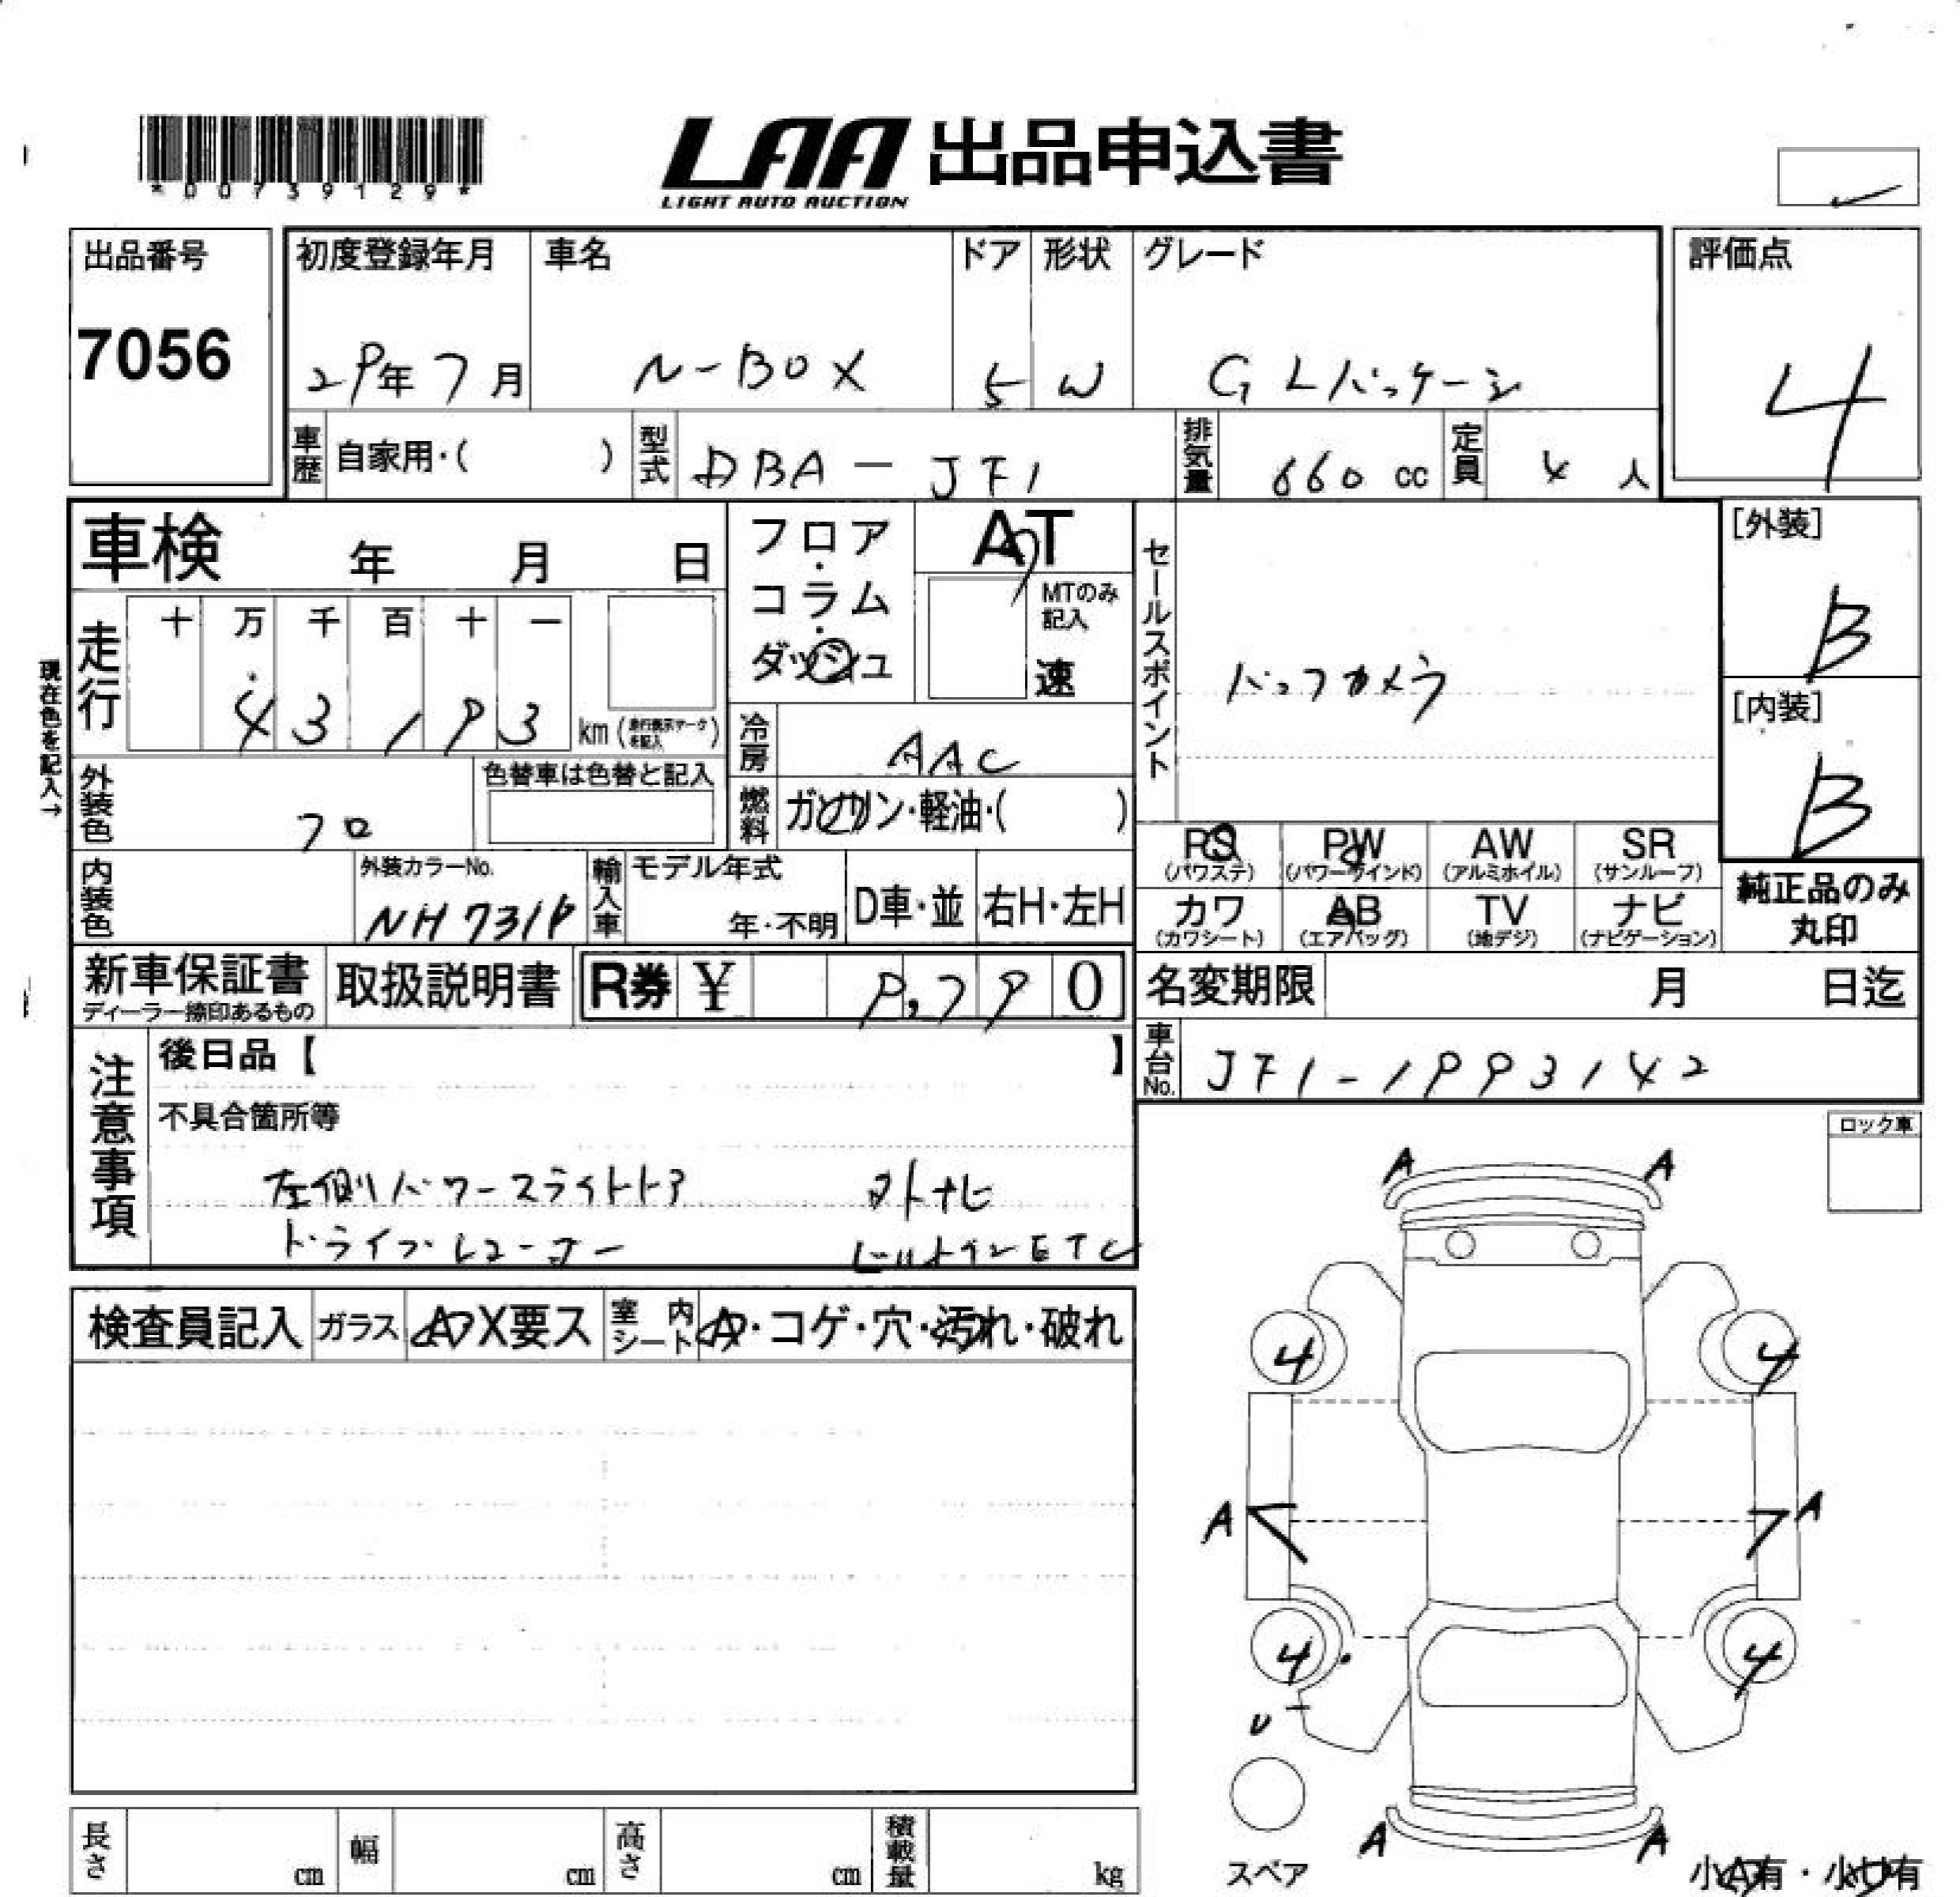 *00739129*
LAA 出品申込書
LIGHT AUTO AUCTION
出品番号
7056
初度登録年月
29年 7月
車名
N-BOX
ドア
5
形状
W
グレード
G Lパッケージ
評価点
4
車歴 自家用・( )
型式 DBA-JF1
排気量 660 cc
定員 4 人
車検 年 月 日
フロア・コラム・ダッシュ
AT
MTのみ記入
速
セールスポイント
バックカメラ
[外装]
B
[内装]
B
現在色を記入→
走行
十 万 千 百 十 一
4 3 1 9 3
km (走行表示マークを記入)
冷房 AAC
外装色 クロ
色替車は色替と記入
燃料 ガソリン・軽油・( )
RS (パワステ)
PW (パワーウインド)
AW (アルミホイル)
SR (サンルーフ)
カワ (カワシート)
AB (エアバッグ)
TV (地デジ)
ナビ (ナビゲーション)
純正品のみ丸印
内装色
外装カラーNo.
NH731P
輸入車
モデル年式
年・不明
D車・並
右H・左H
新車保証書
ディーラー捺印あるもの
取扱説明書
R券 ¥ 9,790
名変期限 月 日迄
車台No. JF1-1993142
注意事項
後日品【 】
不具合箇所等
左側パワースライドドア 外ナビ
ドライブレコーダー ビルトインETC
ロック車
A A
検査員記入
ガラス AアX要ス
室内シート A・コゲ・穴・汚れ・破れ
4 4
A A
4 4
U
スペア
A A
小A有・小U有
長さ cm
幅 cm
高さ cm
積載量 kg